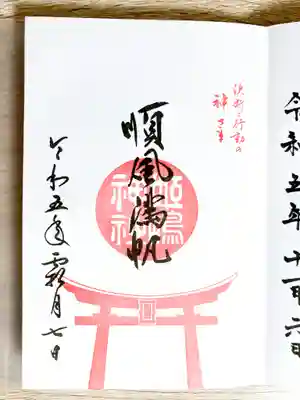 決断と行動の
神さま
順風満帆
姫嶋
神社
令和五年霜月七日
令和五年十一月六日